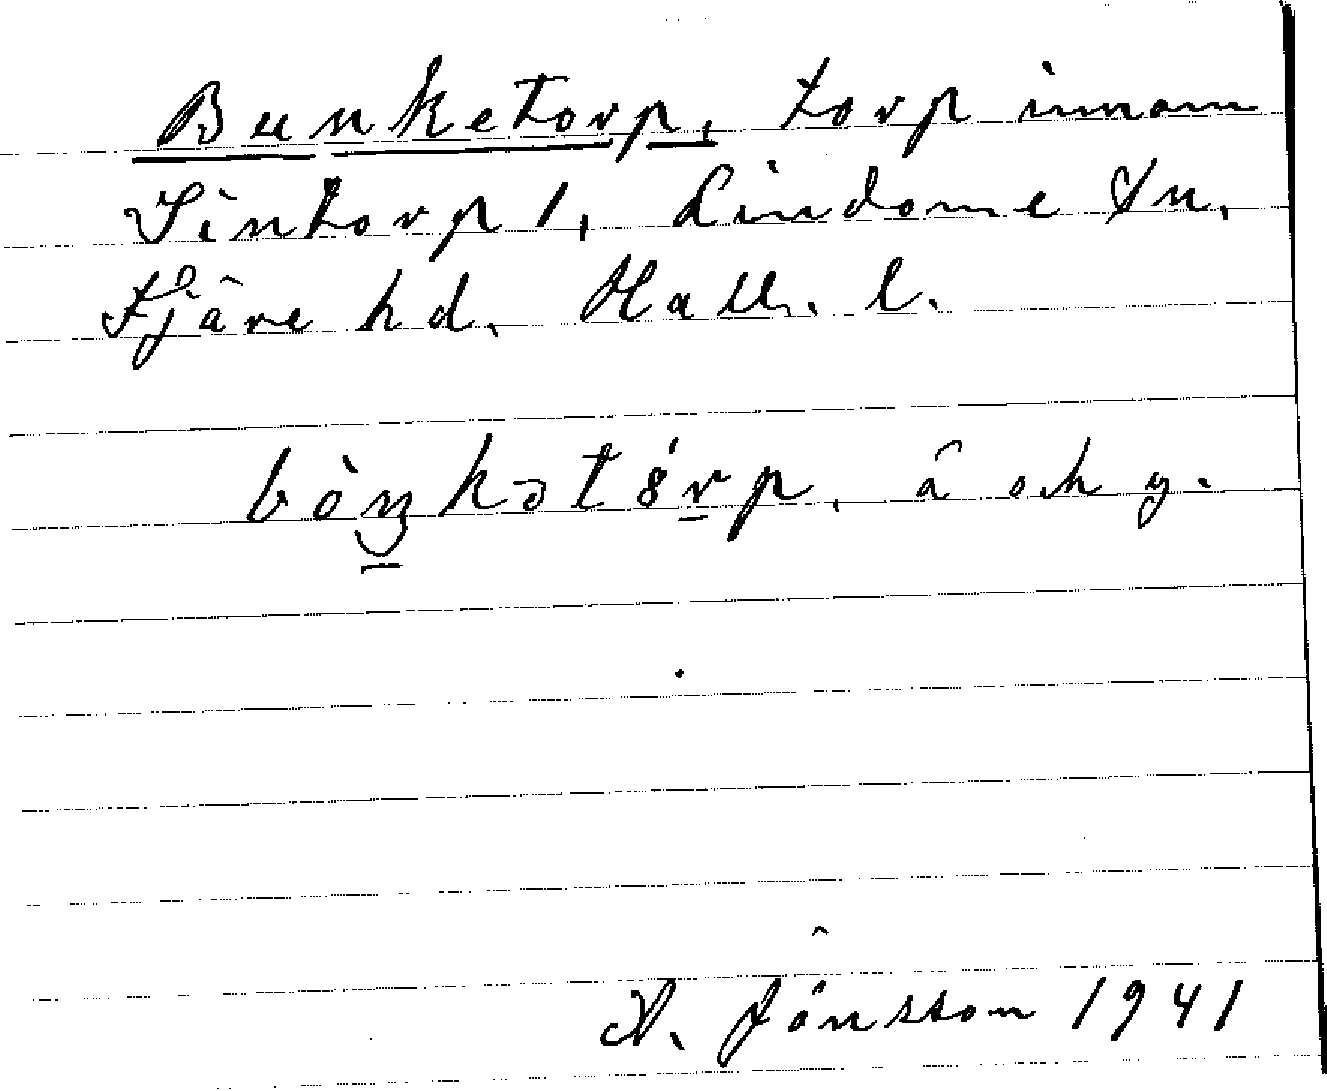 Bunketorp, torp innom
Sintorp 1, Lindome sn,
Fjäre hd, Hall. l.
bòŋkətórp, â och y.
A. Jönsson 1941